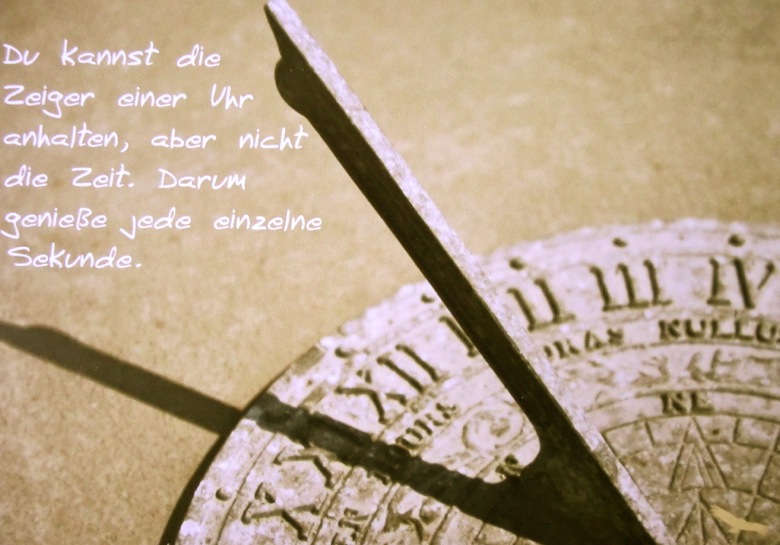 Du kannst die
Zeiger einer Uhr
anhalten, aber nicht
die Zeit. Darum
genieße jede einzelne
Sekunde.
I II III IV
XII
XI
X